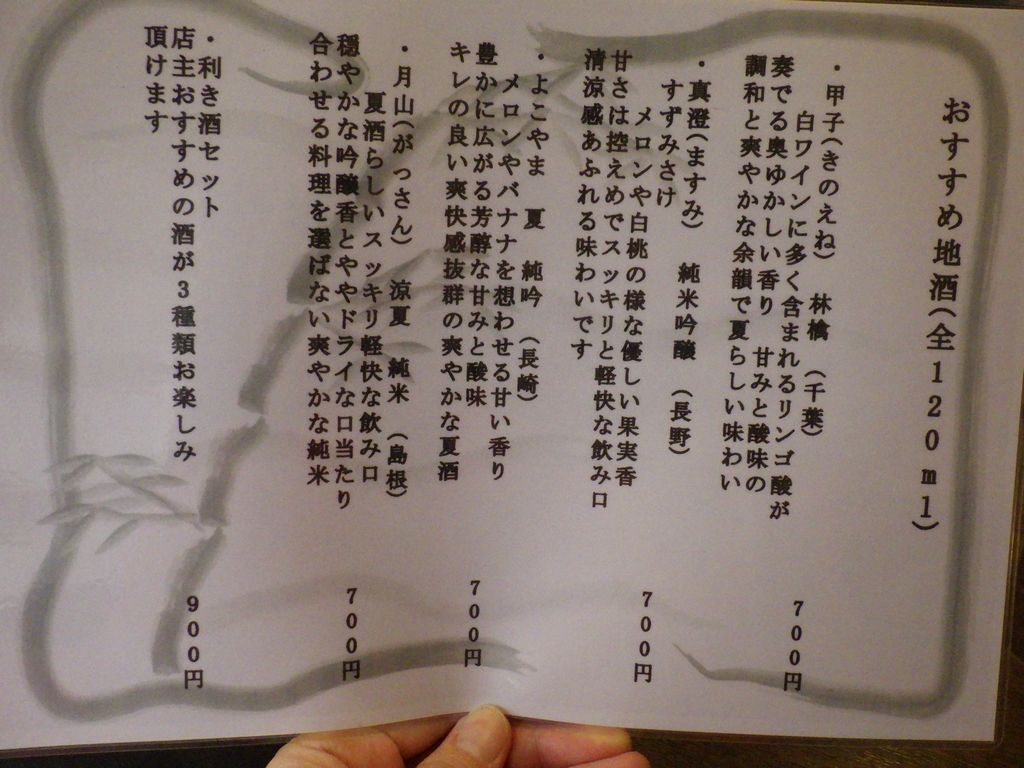 おすすめ地酒(全120ml)
・甲子(きのえね) 林檎 (千葉)
白ワインに多く含まれるリンゴ酸が
奏でる奥ゆかしい香り 甘みと酸味の
調和と爽やかな余韻で夏らしい味わい
700円
・真澄(ますみ) 純米吟醸 (長野)
すずみさけ
メロンや白桃の様な優しい果実香
甘さは控えめでスッキリと軽快な飲み口
清涼感あふれる味わいです
700円
・よこやま 夏 純吟 (長崎)
メロンやバナナを想わせる甘い香り
豊かに広がる芳醇な甘みと酸味
キレの良い爽快感抜群の爽やかな夏酒
700円
・月山(がっさん) 涼夏 純米 (島根)
夏酒らしいスッキリ軽快な飲み口
穏やかな吟醸香とややドライな口当たり
合わせる料理を選ばない爽やかな純米
700円
・利き酒セット
店主おすすめの酒が3種類お楽しみ
頂けます
900円